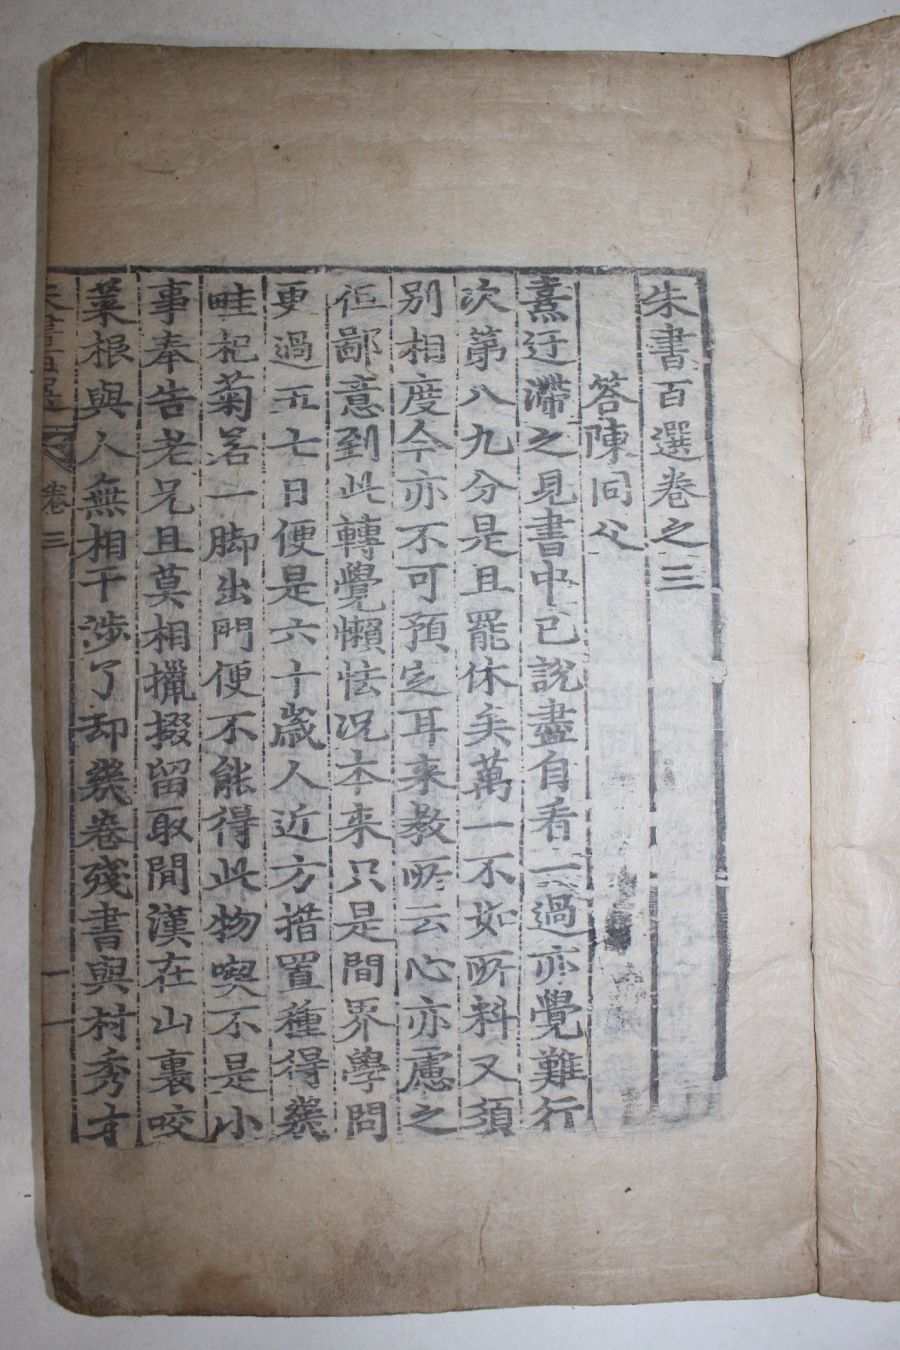 朱書百選卷之三
答陳同父
熹迂滯之見書中已說盡自看一過亦覺難行
次第八九分是且罷休矣萬一不如所料又須
別相度今亦不可預定耳来教所云心亦慮之
但鄙意到此轉覺懶怯况本来只是間界學問
更過五七日便是六十歲人近方措置種得幾
畦杞菊若一脚出門便不能得此物喫不是小
事奉告老兄且莫相攛掇留取閒漢在山裏咬
菜根與人無相干涉了却幾卷殘書與村秀才
朱書百選 卷三 一